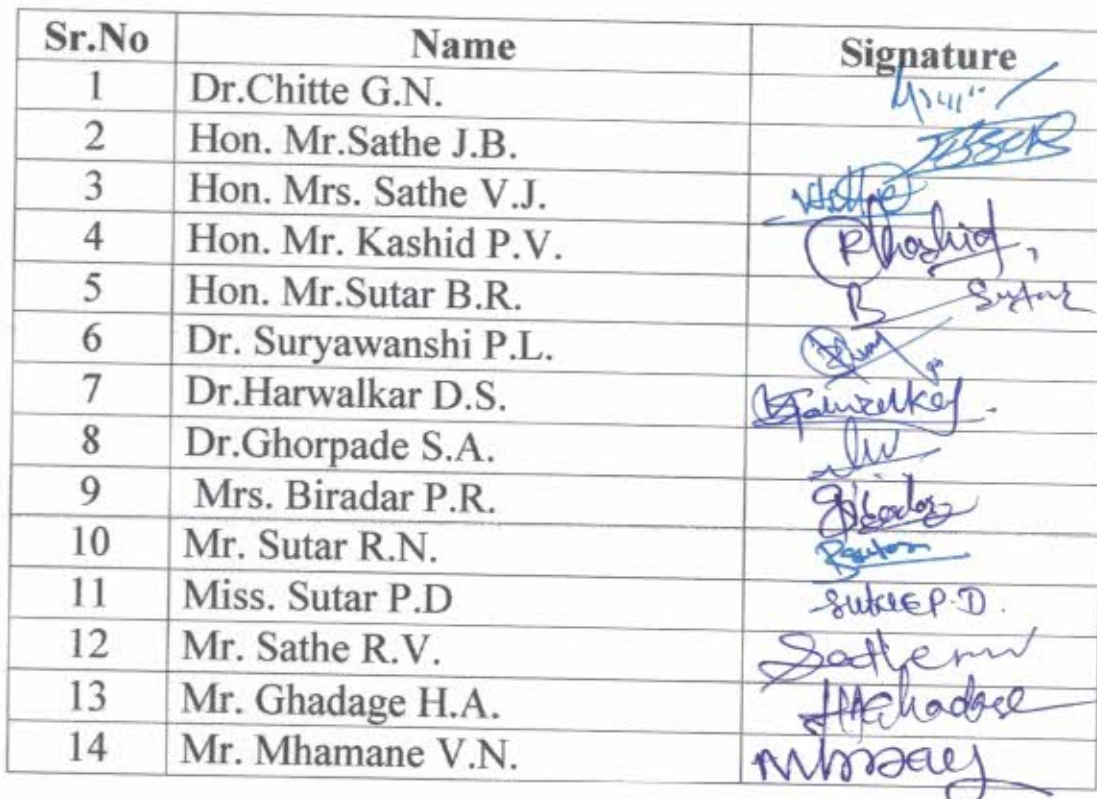 Sr.No Name Signature
1 Dr.Chitte G.N.
2 Hon. Mr.Sathe J.B.
3 Hon. Mrs. Sathe V.J.
4 Hon. Mr. Kashid P.V. PKashid
5 Hon. Mr.Sutar B.R. B Sutar
6 Dr. Suryawanshi P.L.
7 Dr.Harwalkar D.S.
8 Dr.Ghorpade S.A.
9 Mrs. Biradar P.R.
10 Mr. Sutar R.N.
11 Miss. Sutar P.D P.D.
12 Mr. Sathe R.V.
13 Mr. Ghadage H.A. HAGhadage
14 Mr. Mhamane V.N.